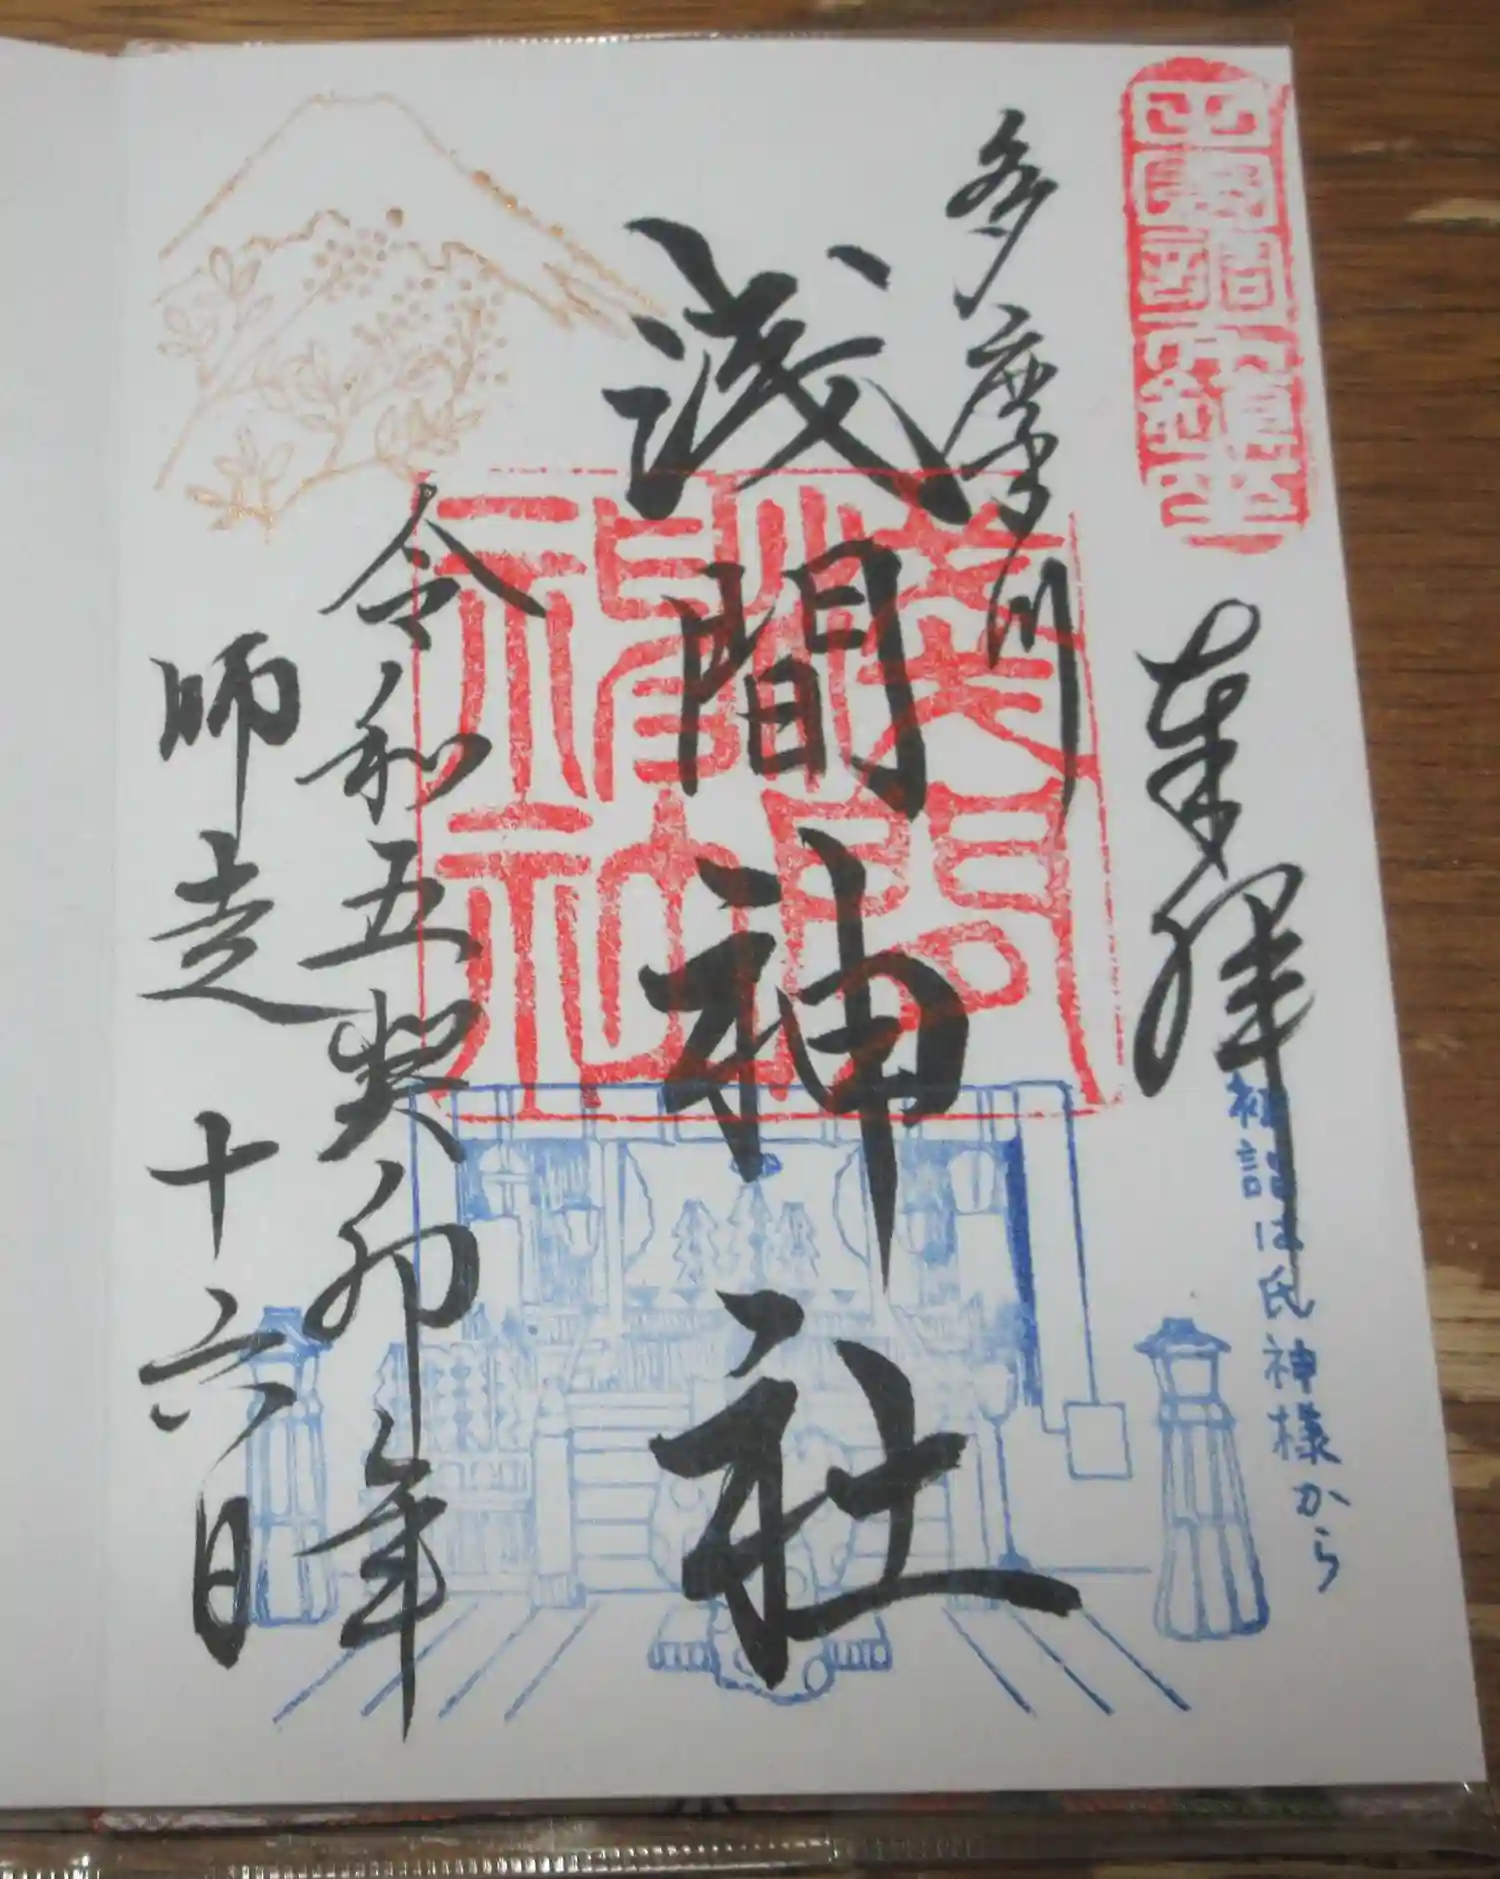 奉拝
初詣は氏神様から
多摩川
浅間神社
浅間神社
令和五癸卯年
師走 十六日